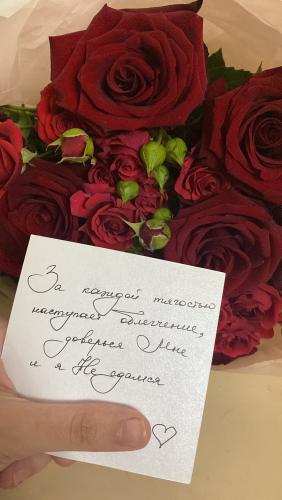 За каждой тягостью
наступает облегчение,
доверься Мне
и я Не сдамся